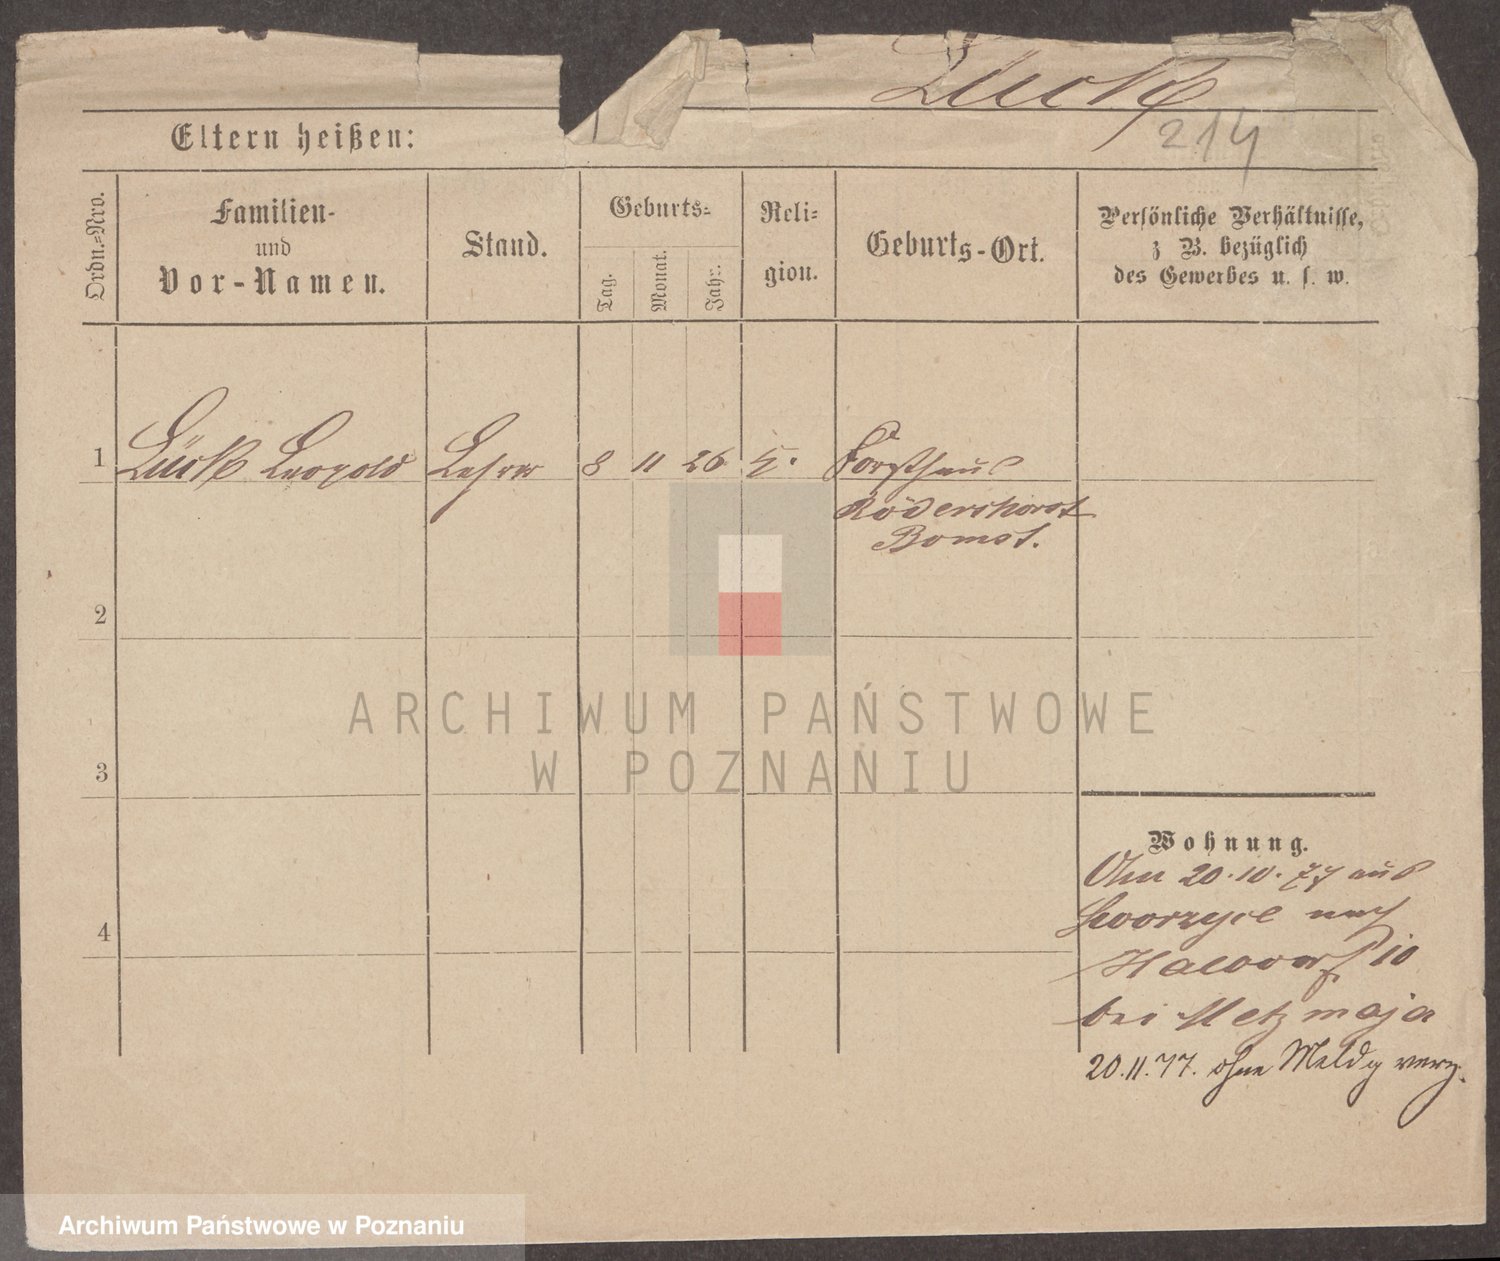 Lück
214
Eltern heißen:
Ordn.=Nro.
Familien-
und
Vor-Namen.
Stand.
Geburts=
Tag.
Monat.
Jahr.
Reli=
gion.
Geburts-Ort.
Persönliche Verhältnisse,
z B. bezüglich
des Gewerbes u. s. w.
1 Lück Leopold Lehrer 8 11 26 Forsthaus
Rödershorst
Bomst.
2
3
4
Wohnung.
Am 20.10.77 aus
nach
10
bei Metz
20.11.77. ohne Meldg verz.
ARCHIWUM PAŃSTWOWE
W POZNANIU
Archiwum Państwowe w Poznaniu